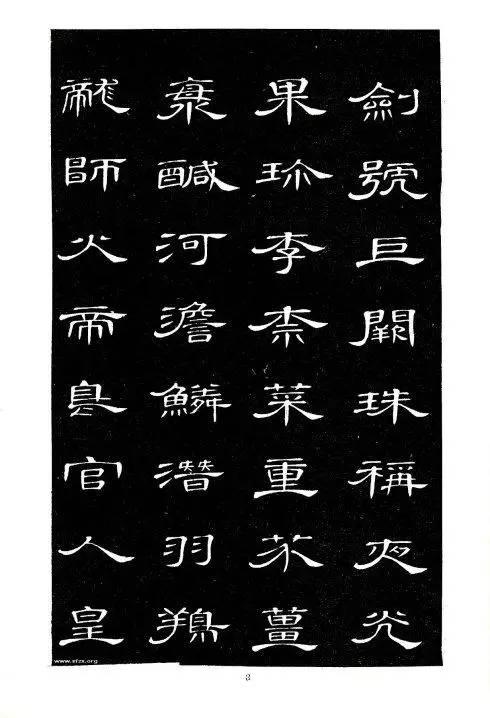 劍號巨闕珠稱夜光
果珎李柰菜重芥薑
醎河澹鱗潛羽鴹
龍師火帝鳥官人皇
www.sfzx.org
3